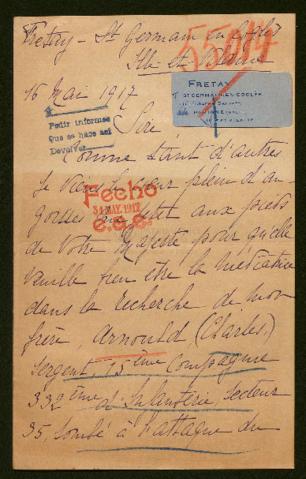 Fretay - St Germain en Coglès
Ille et Vilaine
55014
16 Mai 1917
FRETAY
ST GERMAIN-EN-COGLÈS
Pedir informes
Que se hace así
Devolver
Sire
Comme tant d'autres
je viens le cœur plein d'an
goisses me jeter aux pieds
de Votre Majesté pour qu'elle
veuille bien être la médiatrice
dans la recherche de mon
frère, Arnould (Charles)
Fecho
31 MAY. 1917
Sergent, 15ème Compagnie
332ème d'Infanterie, Secteur
35, tombé à l'attaque du